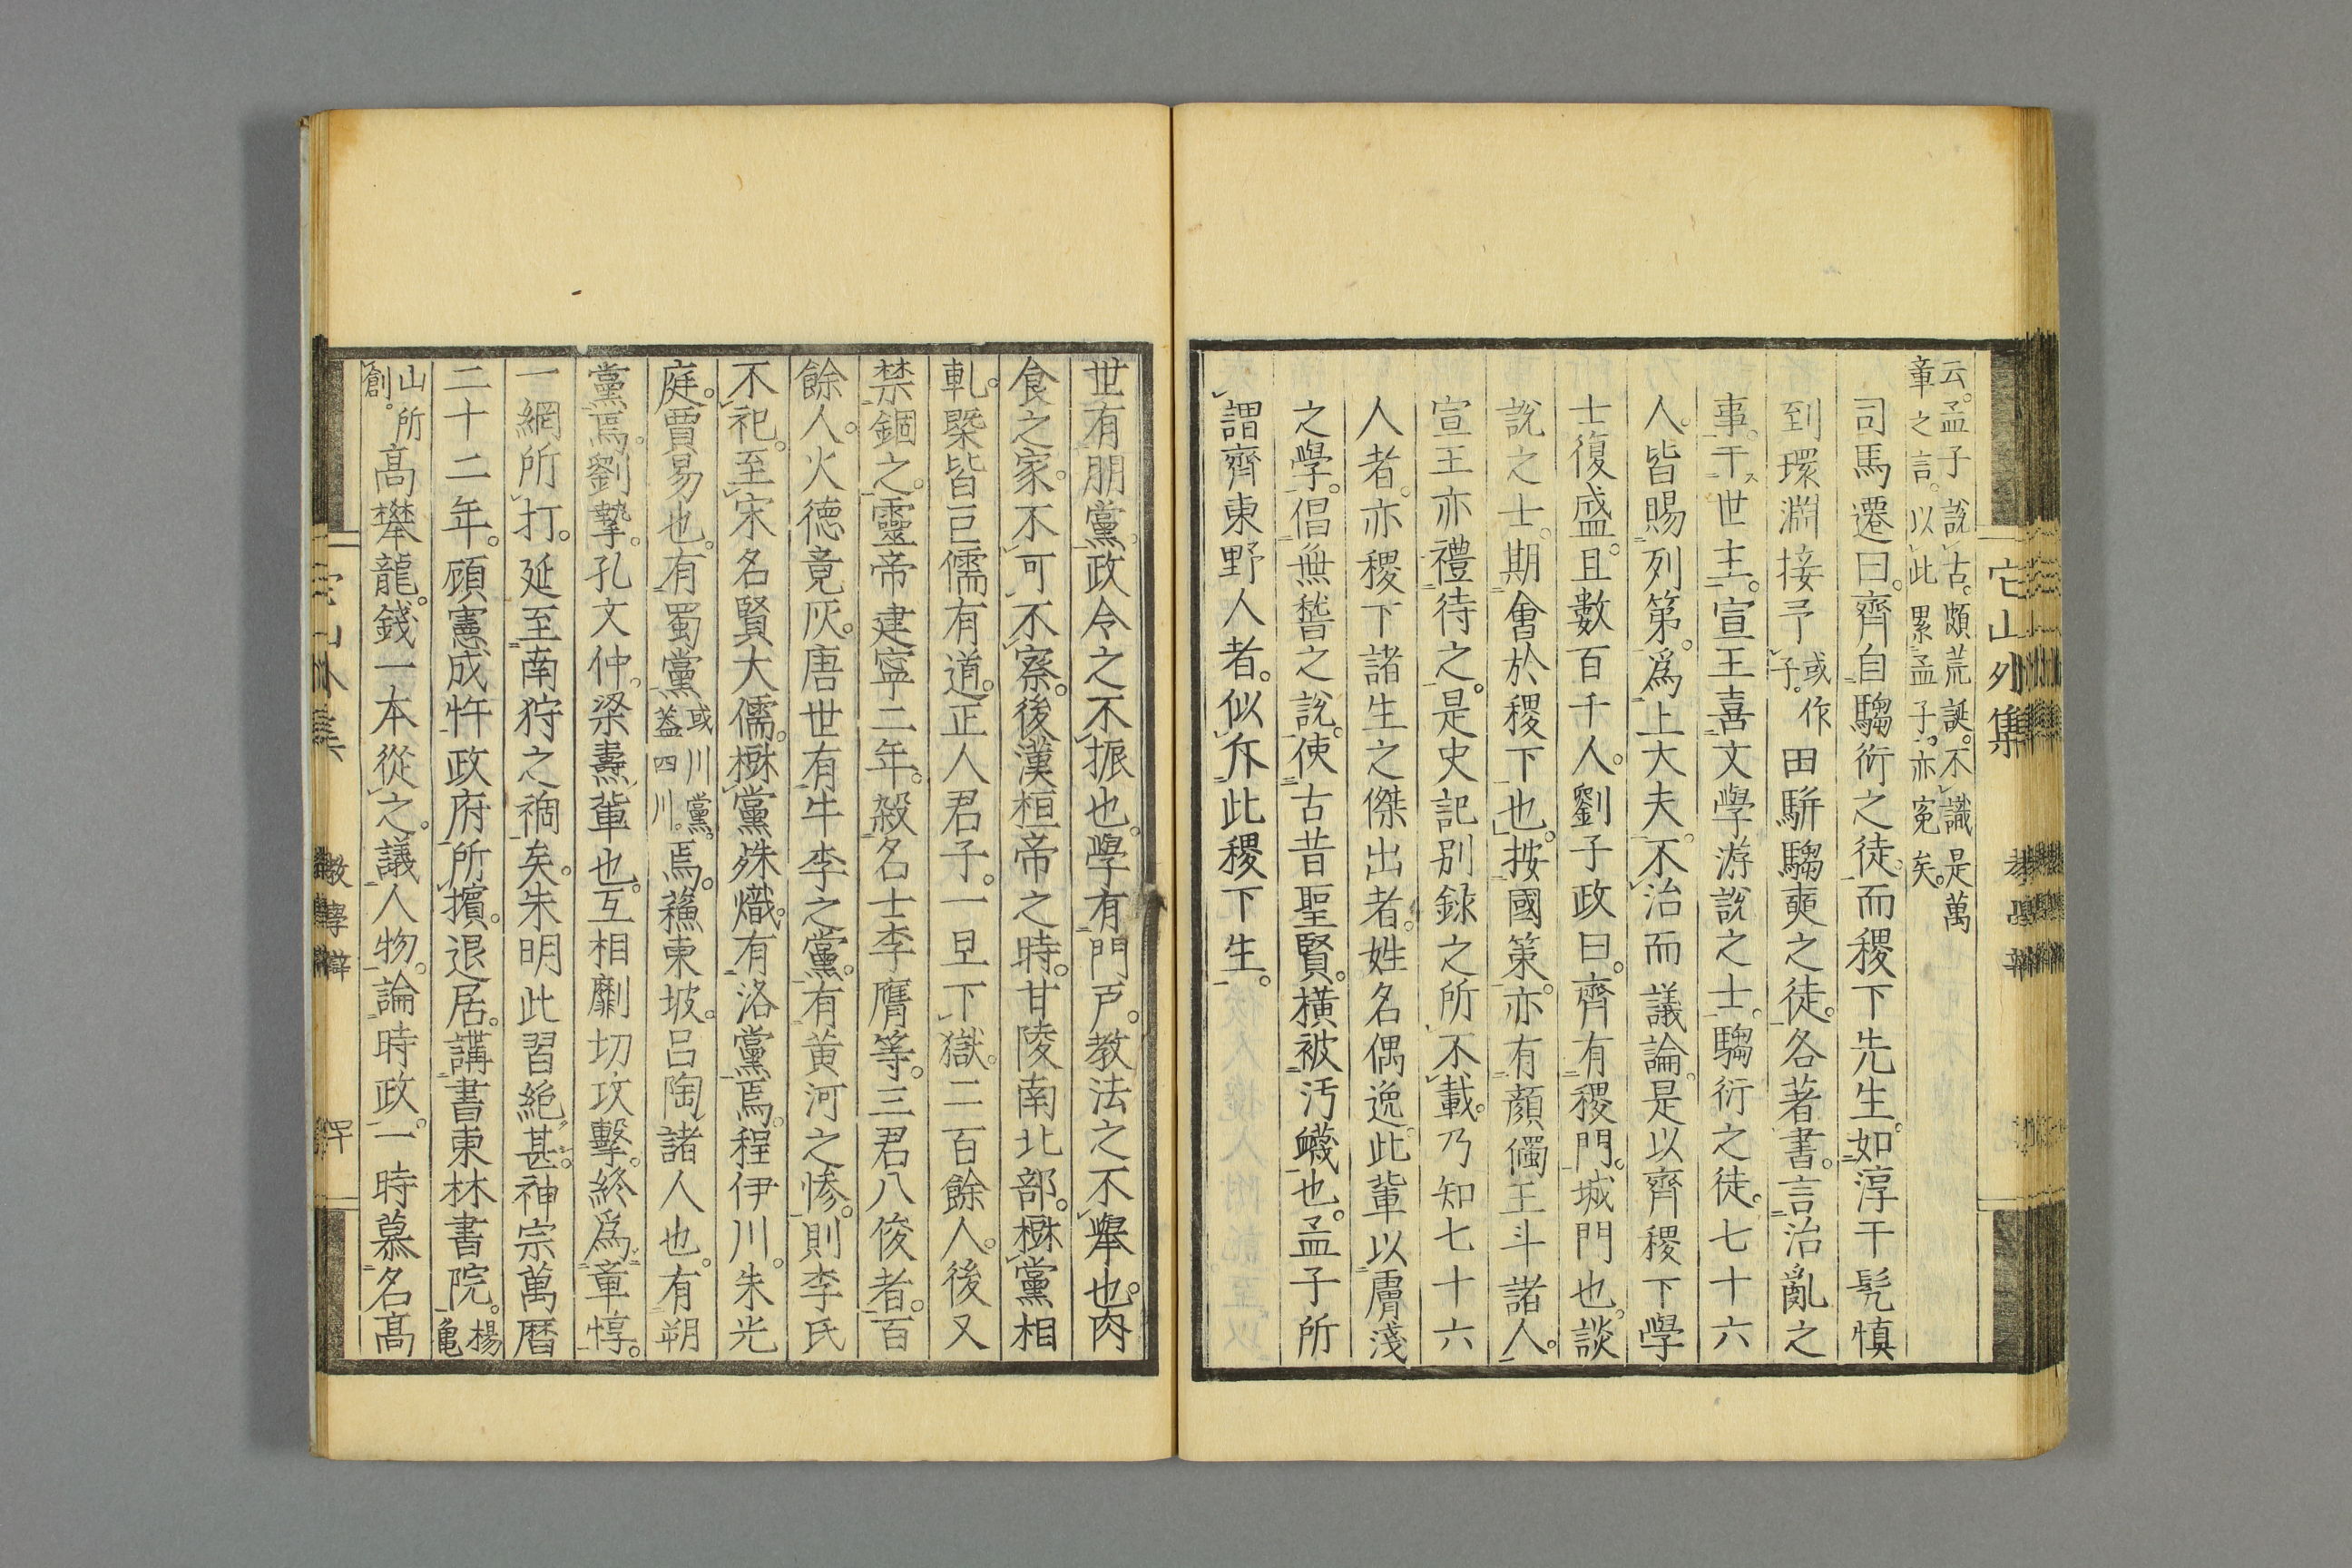 它山外集
云。孟子説古。頗荒誕。不識是萬
章之言。以此累孟子。亦寃矣。
司馬遷曰。齊自騶衍之徒。而稷下先生。如淳于髡愼
到環淵接予或作子。田駢騶奭之徒。各著書。言治亂之
事。干世主。宣王喜文學游説之士。騶衍之徒。七十六
人。皆賜列第。爲上大夫。不治而議論。是以齊稷下學
士復盛。且數百千人。劉子政曰。齊有稷門。城門也。談
説之士。期會於稷下也。按國策。亦有顏斶王斗諸人。
宣王亦禮待之。是史記別錄之所不載。乃知七十六
人者。亦稷下諸生之傑出者。姓名偶逸。此輩以膚淺
之學。倡無嵇之説。使古昔聖賢。橫被汚衊也。孟子所
謂齊東野人者。似斥此稷下生。
世有朋黨。政令之不振也。學有門戸。教法之不舉也。肉
食之家。不可不察。後漢桓帝之時。甘陵南北部。櫱黨相
軋。槩皆巨儒有道。正人君子。一旦下獄。二百餘人。後又
禁錮之。靈帝建寧二年。殺名士李膺等。三君八俊者。百
餘人。火德竟灰。唐世有牛李之黨。有黄河之慘。則李氏
不祀。至宋名賢大儒。櫱黨殊熾。有洛黨焉。程伊川。朱光
庭。賈易也。有蜀黨或川黨。蓋四川。焉。蘓東坡。呂陶諸人也。有朔
黨焉。劉摯。孔文仲。梁燾輩也。互相劘切攻擊。終爲章惇。
一網所打。延至南狩之禍矣。朱明此習絶甚。神宗萬曆
二十二年。顧憲成忤政府所擯。退居。講書東林書院。楊龜
山所創。高攀龍。錢一本從之。議人物。論時政。一時慕名高